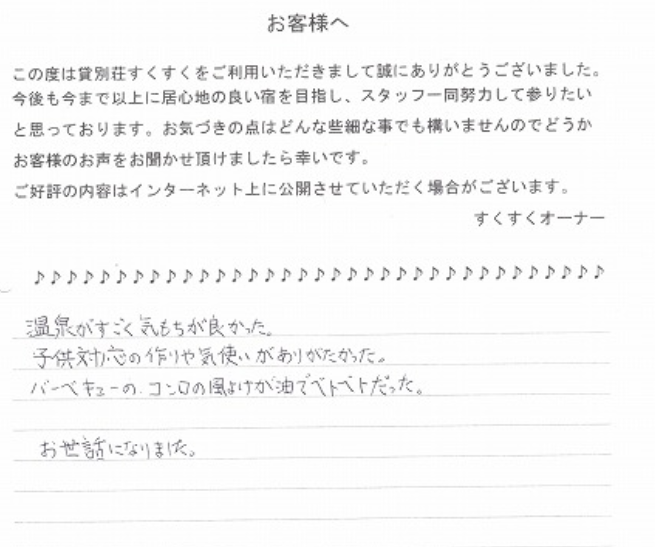 お客様へ
この度は貸別荘すくすくをご利用いただきまして誠にありがとうございました。
今後も今まで以上に居心地の良い宿を目指し、スタッフ一同努力して参りたい
と思っております。お気づきの点はどんな些細な事でも構いませんのでどうか
お客様のお声をお聞かせ頂けましたら幸いです。
ご好評の内容はインターネット上に公開させていただく場合がございます。
すくすくオーナー
♪♪♪♪♪♪♪♪♪♪♪♪♪♪♪♪♪♪♪♪♪♪♪♪♪♪♪♪♪♪♪♪♪♪♪
温泉がすごく気もちが良かった。
子供対応の作りや気使いがありがたかった。
バーベキューの、コンロの風よけが油でベトベトだった。
お世話になりました。